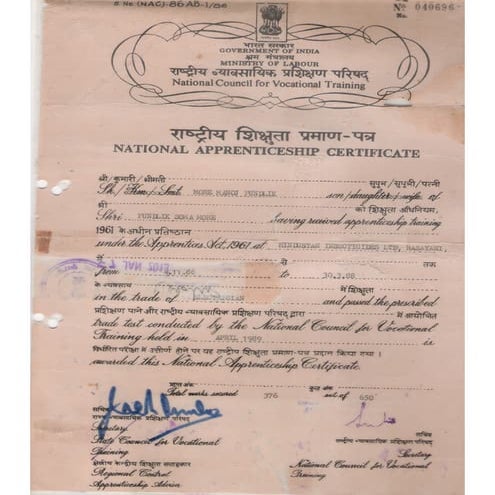 S. No. (NAC)-86 AB-1/86
नं०
No. 040696
भारत सरकार
GOVERNMENT OF INDIA
श्रम मंत्रालय
MINISTRY OF LABOUR
राष्ट्रीय व्यावसायिक प्रशिक्षण परिषद्
National Council for Vocational Training
राष्ट्रीय शिक्षुता प्रमाण-पत्र
NATIONAL APPRENTICESHIP CERTIFICATE
श्री/कुमारी/श्रीमती सुपुत्र/सुपुत्री/पत्नी
Sh./Km./Smt. MORE MANOJ PUNDLIK son/daughter/wife of
श्री को शिक्षुता अधिनियम,
Shri PUNDLIK SONA MORE having received apprenticeship training
1961 के अधीन प्रतिष्ठान
under the Apprentices Act, 1961 at HINDUSTAN INSECTICIDES LTD, RASAYANI,
से तक
from to 30.3.88
के व्यवसाय में शिक्षुता
in the trade of and passed the prescribed
प्रशिक्षण पाने और राष्ट्रीय व्यावसायिक प्रशिक्षण परिषद् द्वारा में आयोजित
trade test conducted by the National Council for Vocational
Training held in APRIL 1989 is
निर्धारित परीक्षा में उत्तीर्ण होने पर यह राष्ट्रीय शिक्षुता प्रमाण-पत्र प्रदान किया गया।
awarded this National Apprenticeship Certificate.
प्राप्त अंक कुल अंक
Total marks secured 376 out of 650
सचिव
राज्य व्यावसायिक प्रशिक्षण परिषद्
Secretary
State Council for Vocational
Training
क्षेत्रीय केन्द्रीय शिक्षुता सलाहकार
Regional Central
Apprenticeship Adviser
सचिव
राष्ट्रीय व्यावसायिक प्रशिक्षण परिषद्
Secretary
National Council for Vocational
Training